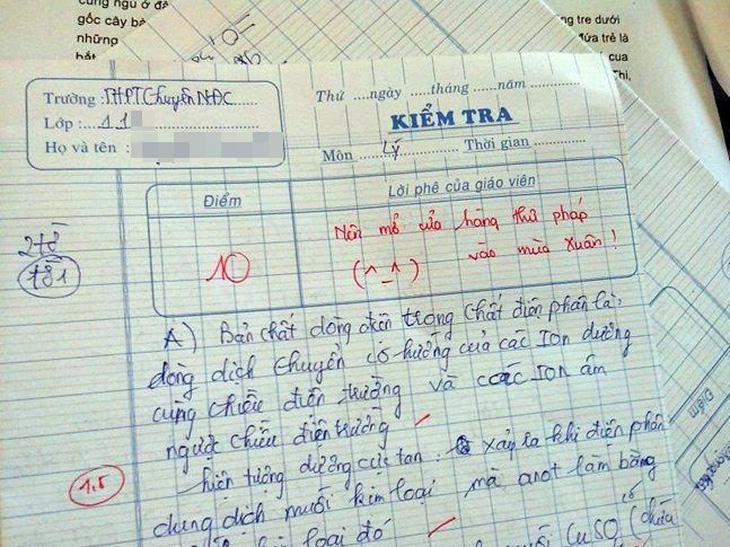 cũng ngủ ở đề
gốc cây bè
những
hắt
ng tre dưới
đứa trẻ là
cua
Thị,
Trường : THPT Chuyên NĐC
Lớp : 11
Họ và tên :
Thứ ....ngày .....tháng .....năm
KIỂM TRA
Môn Lý Thời gian
Điểm
Lời phê của giáo viên
10
Nên mở cửa hàng thư pháp
(^_^) vào mùa Xuân !
2tờ
tờ1
A) Bản chất dòng điện trong chất điện phân là:
dòng dịch chuyển có hướng của các Ion dương
cùng chiều điện trường và các Ion âm
ngược chiều điện trường
hiện tượng dương cực tan: xảy ra khi điện phân
1,5
dung dịch muối kim loại mà anot làm bằng
loại đó
muối CuSO4 có chứa
Điểm